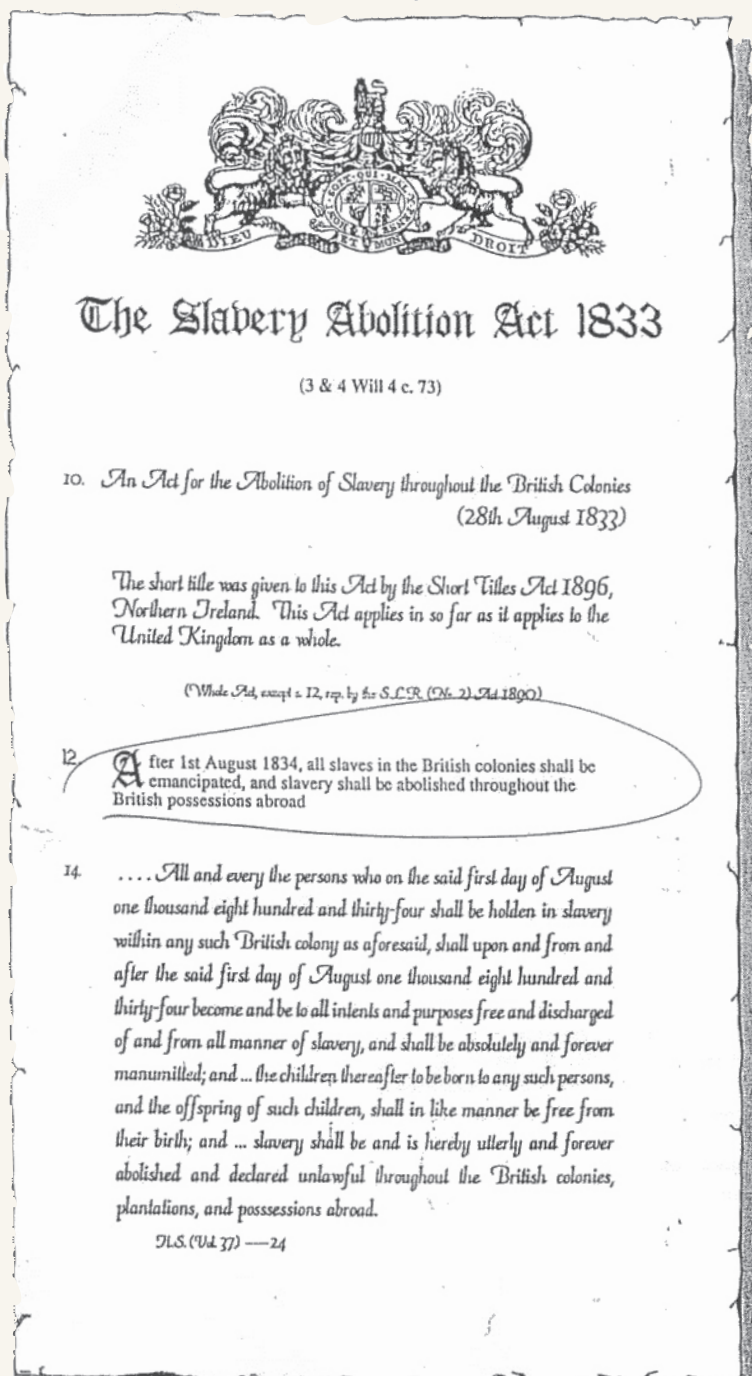 SOIT · QUI · MAL · Y
DIEU ET MON DROIT
The Slavery Abolition Act 1833
(3 & 4 Will 4 c. 73)
10. An Act for the Abolition of Slavery throughout the British Colonies
(28th August 1833)
The short title was given to this Act by the Short Titles Act 1896,
Northern Ireland. This Act applies in so far as it applies to the
United Kingdom as a whole.
(Whole Act, except s. 12, rep. by the S.L.R. (No. 2) Act 1890)
12. After 1st August 1834, all slaves in the British colonies shall be
emancipated, and slavery shall be abolished throughout the
British possessions abroad
14. ....All and every the persons who on the said first day of August
one thousand eight hundred and thirty-four shall be holden in slavery
within any such British colony as aforesaid, shall upon and from and
after the said first day of August one thousand eight hundred and
thirty-four become and be to all intents and purposes free and discharged
of and from all manner of slavery, and shall be absolutely and forever
manumitted; and ... the children thereafter to be born to any such persons,
and the offspring of such children, shall in like manner be free from
their birth; and ... slavery shall be and is hereby utterly and forever
abolished and declared unlawful throughout the British colonies,
plantations, and posssessions abroad.
H.S. (Vol. 37) —24